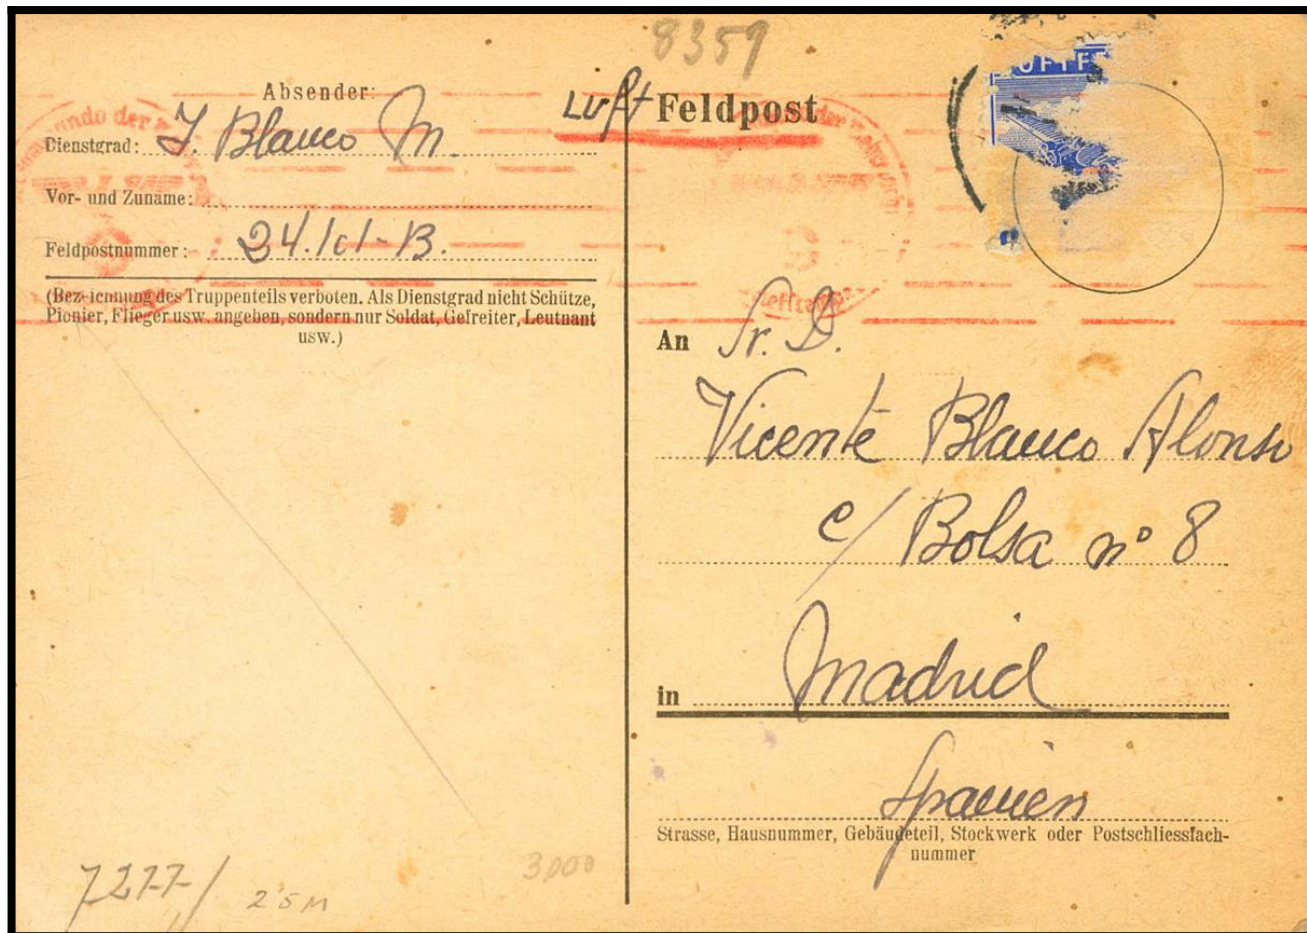 8359
Absender:
Dienstgrad: J. Blanco M.
Vor- und Zuname:
Feldpostnummer: 24.101-B.
(Bezeichnung des Truppenteils verboten. Als Dienstgrad nicht Schütze,
Pionier, Flieger usw. angeben, sondern nur Soldat, Gefreiter, Leutnant
usw.)
Luft Feldpost
An Sr. D.
Vicente Blanco Alonso
c/ Bolsa nº 8
in Madrid
Spanien
Strasse, Hausnummer, Gebäudeteil, Stockwerk oder Postschliessfach-
nummer
3000